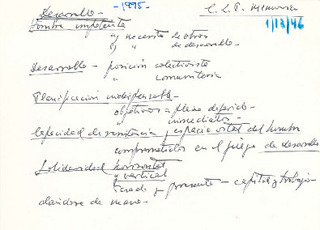 -1995.
C.L.P. Memoria
1/12/46
Desarrollo -
hombre impotente
1) necesita de otros
2) " de desarrollo.
Desarrollo - posición colectivista
" comunitaria
Planificación indispensable -
objetivos = pleno
inmediatos -
Capacidad de resistencia y espacio vital del hombre
comprometidos en el juego de desarrollo
Solidaridad horizontal
y vertical
y presente - capital y trabajo
de mano -